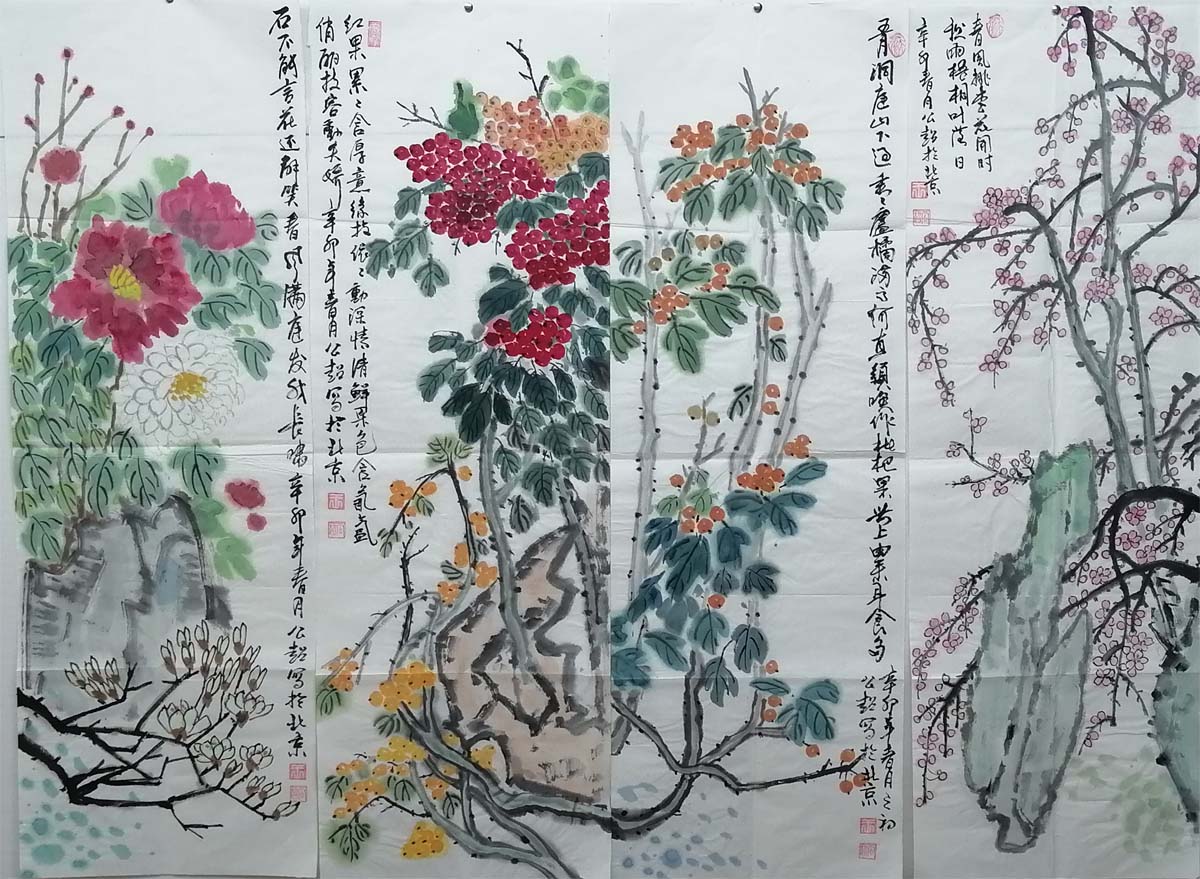 春风桃李花開时
秋雨梧桐叶落日
辛卯春月公超於北京
五月洞庭山下过素素盧橘满山阿直須唤作枇杷果世上由来耳食多
辛卯年春月之初
公超写於北京
红果累々含厚意绿枝依々動深情清鲜果色含氣盛
俏丽枝容動笑娇辛卯年春月公超写於北京
石不能言花还解笑春风满庭发我长啸辛卯年春月公超写於北京